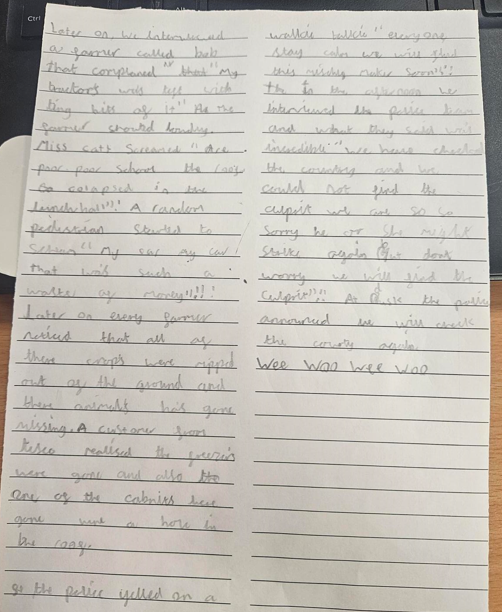 Later on, we interviewed
a farmer called bob
that complaned" that "My
tractors was left with
tiny bits of it" As the
farmer shouted loudly.
Miss catt Screamed "Are
poor poor School the roof
so colapsed in the
lunch-hall"!" A random
pedestrian started to
Scream" My car my car!
that was such a
waste of money"!!!
Later on every farmer
noticed that all of
there crops were ripped
out of the ground and
there animals has gone
missing. A customer from
tesco realised the freezers
were gone and also
one of the cabniss been
gone were a hole in
the roof.
go the police yelled on a
walkie talkie" everyone
stay calm we will find
this mischif maker Sorry"!!
the in the afternoon we
interviewed the police
and what they said was
incredible" We have checked
the country and we
could not find the
culprit we are so so
sorry he or she might
strike again but dont
worry we will find the
culprit"!! As the police
announced we will check
the county again.
Wee Woo Wee Woo